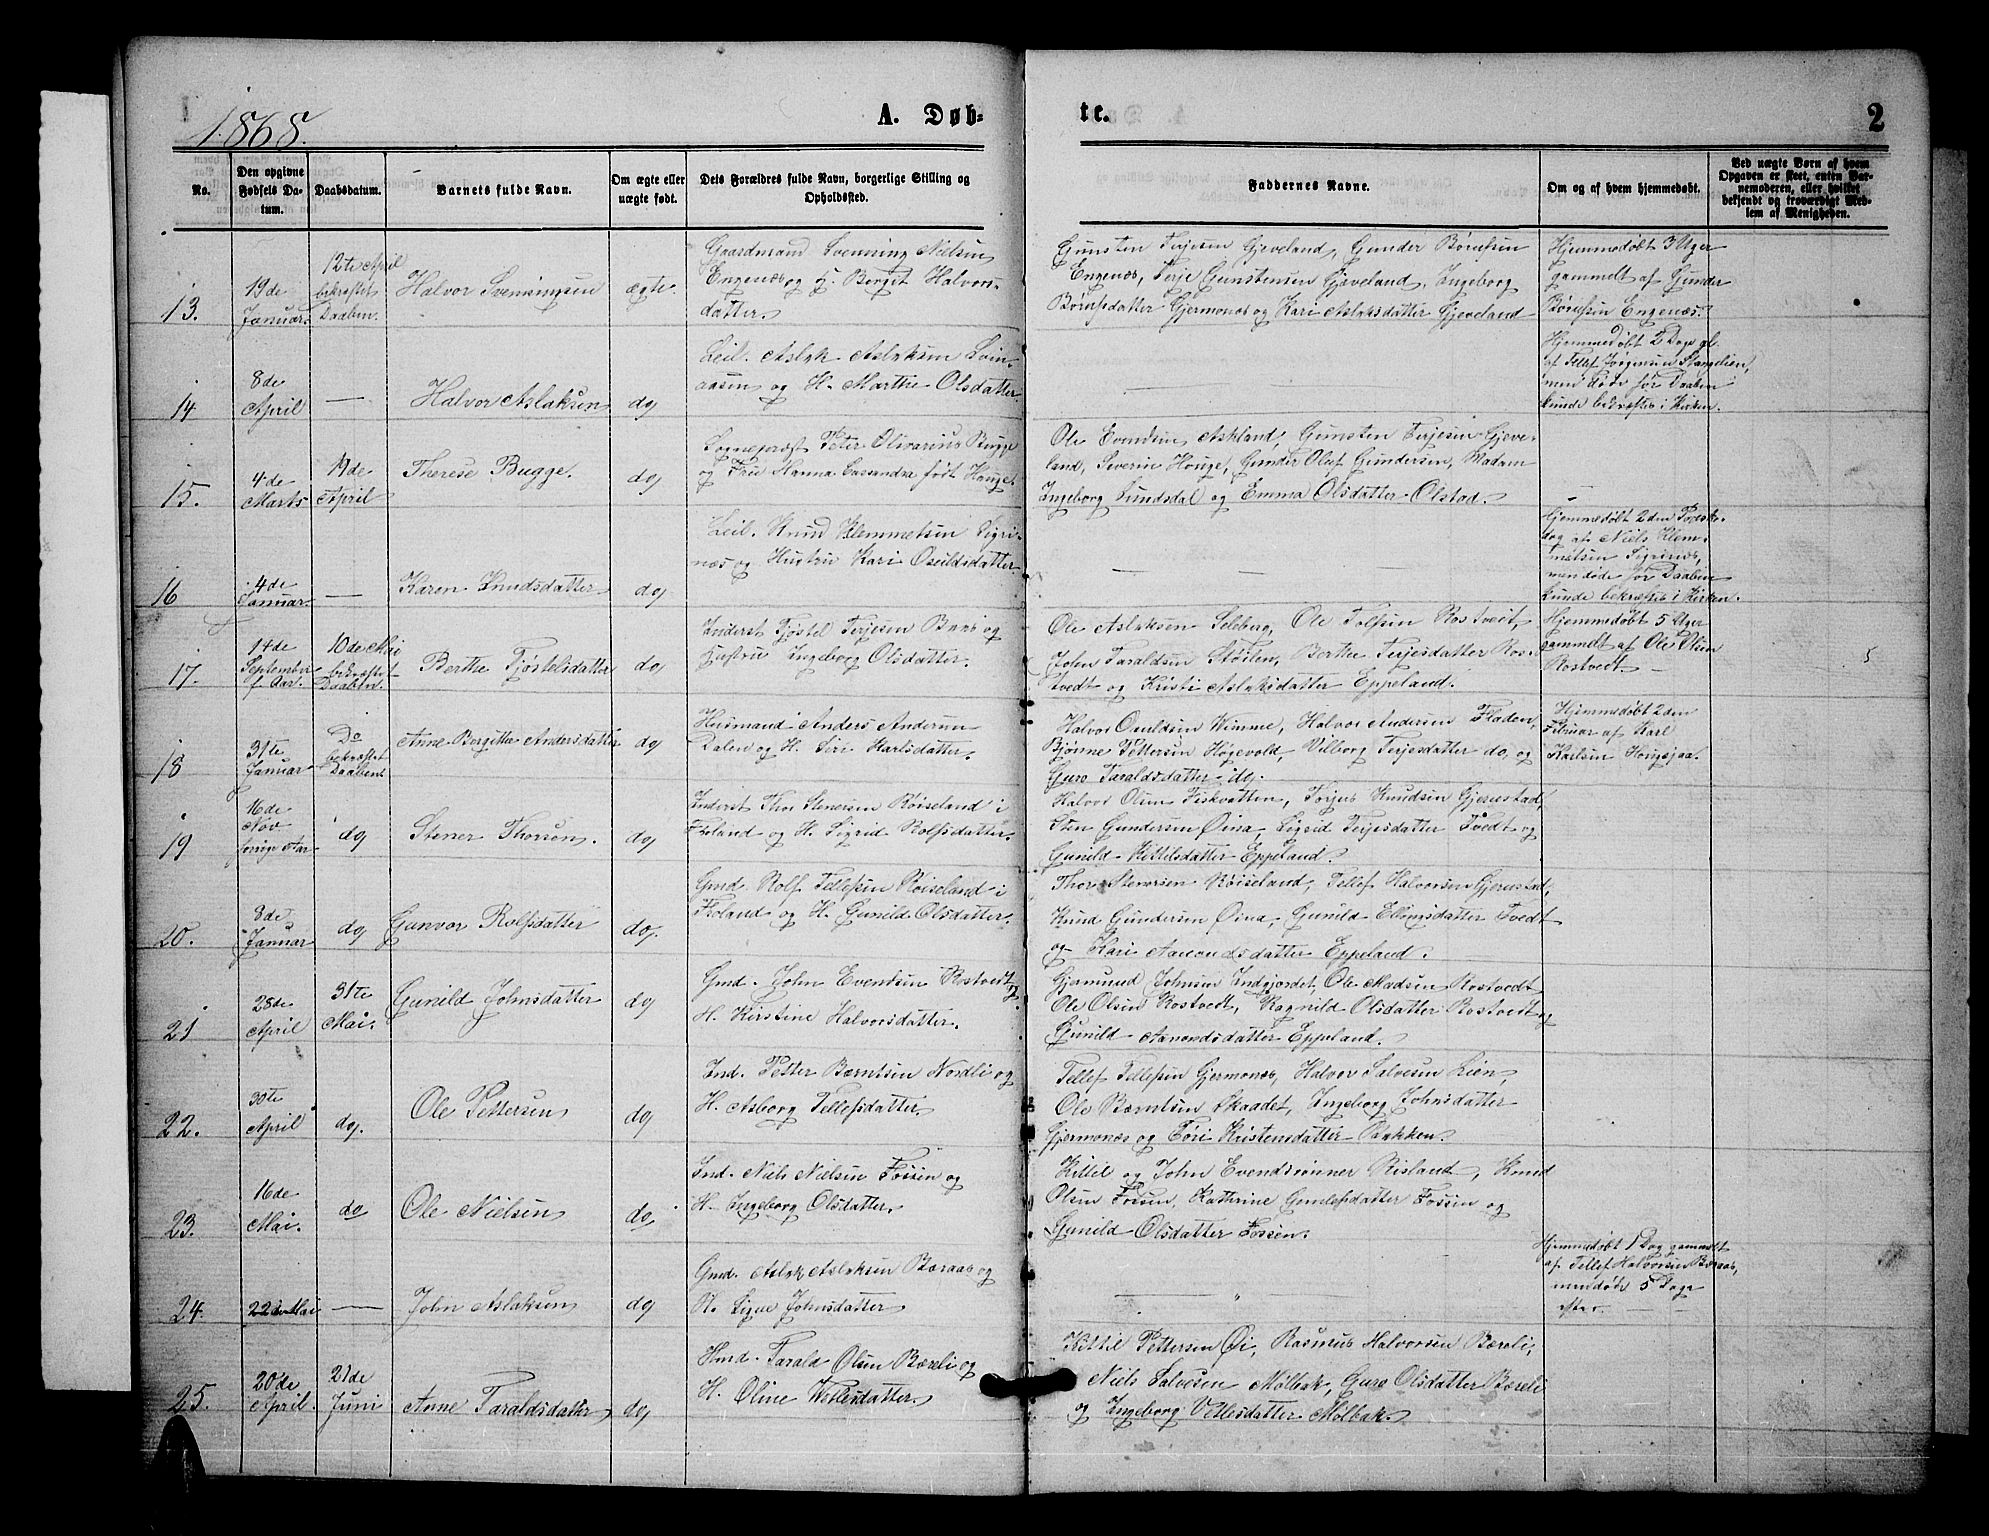 1868.
A. Døb-
te.
2
No.
Den opgivne Fødsels Da-tum.
Daabsdatum.
Barnets fulde Navn.
Om ægte eller uægte født.
Dets Forældres fulde Navn, borgerlige Stilling og Opholdssted.
Faddernes Navne.
Om og af hvem hjemmedøbt.
Ved uægte Børn af hvem Opgaven er skeet, enten Bar-nemoderen, eller hvilket bekjendt og troværdigt Med-lem af Menigheden.
13.
19de Januar.
12te April bekræftet Daaben.
Halvor Svenningsen
ægte.
Gaardmand Svenning Nielsen
Engenæs og H. Berget Halvors-
datter.
Gunsten Terjesen Gjeveland, Gunder Børufsen
Engenæs, Terje Gunstensen Gjeveland, Ingeborg
Børufsdatter Gjermonæs og Kari Aslaksdatter Gjeveland
Hjemmedøbt 3 Uger
gammelt af Gunder
Børufsen Engenæs.
14
8de April
—
Halvor Aslaksen
do
Leil. Aslak Aslaksen Lvin-
aasen og H. Marthe Olsdatter.
—
Hjemmedøbt 2 Dage gl.
af Tellef Jørgensen Stanglien,
men døde før Daaben
kunde bekræftes i Kirken.
15.
4de Marts
19de April
Therese Bugge.
do
Sognepræst Peter Olivarius Bugge
og Frue Hanna Cassandra født Houge.
Ole Evendsen Askland, Gunsten Terjesen Gjeve-
land, Severin Houge, Gunder Oluf Gundersen, Madam
Ingeborg Lundsdal og Emma Olsdatter Olstad.
—
16
4de Januar.
—
Karen Knudsdatter
do
Leil. Knud Klemmetsen Sigri-
næs og Hustru Kari Osuldsdatter.
— — —
Hjemmedøbt 2den Paaske-
dag af Niels Klem-
metsen Sigrinæs,
men døde før Daaben
kunde bekræftes i Kirken.
17.
14de September f. Aar.
10de Mai bekræftet Daaben.
Berthe Tjøstelsdatter
do
Inderst Tjøstel Terjesen Baas og
Hustru Ingeborg Olsdatter.
Ole Aslaksen Seleberg, Ole Tolfsen Rostveit,
John Taraldsen Støilen, Berthe Terjesdatter Ros-
tvedt og Kristi Aslaksdatter Eppeland.
Hjemmedøbt 5 Uger
gammelt af Ole Olsen
Rostvedt. —
5
18
31te Januar
Do bekræftet Daaben
Anne Borgitte Andersdatter
do
Husmand Anders Andersen
Dalen og H. Siri Karlsdatter.
Halvor Osuldsen Wimme, Halvor Andersen Fladen,
Bjønne Pettersen Høgevold, Vilborg Terjesdatter do, og
Guro Taraldsdatter do.
Hjemmedøbt 2den
Februar af Karl
Karlsen Hougsjaa.
19
16de Nov forrige Aar
do
Stener Thorsen.
do
Inderst Thor Stenersen Røiseland i
Froland og H. Sigrid Rolfsdatter.
Halvor Olsen Fiskvatten, Torjus Knudsen Gjerustad,
Sten Gundersen Øina, Sigrid Terjesdatter Tvedt og
Gunild Kittilsdatter Eppeland.
20.
8de Januar
do
Gunvor Rolfsdatter
do.
Gmd. Rolf Tellefsen Røiseland i
Froland og H. Gunild Olsdatter.
Thor Stenersen Røiseland, Tellef Halvorsen Gjerustad,
Knud Gundersen Øina, Gunild Ellingsdatter Tvedt
og Kari Aanondsdatter Eppeland.
21
28de April
31te Mai.
Gunild Johnsdatter
do
Gmd. John Evendsen Rostvedt og
H. Kirstine Halvorsdatter.
Gjermund Johnsen Indgjordet, Ole Madsen Rostvedt
Ole Olsen Rostvedt, Ragnild Olsdatter Rostvedt og
Gunild Aanondsdatter Eppeland.
22.
30te April
do.
Ole Pettersen
do
Ind. Petter Berntsen Nordli og
H. Asborg Tellefsdatter.
Tellef Tellefsen Gjermonæs, Halvor Salvesen Lien,
Ole Berntsen Skaadet, Ingeborg Johnsdatter
Gjermonæs og Tøri Kristensdatter Bakken.
23.
16de Mai.
do
Ole Nielsen
do
Ind. Niels Nielsen Fossen og
H. Ingeborg Olsdatter.
Kittil og John Evendsønner Risland, Knud
Olsen Fossen, Kathrine Gunlefsdatter Fossen og
Gunild Olsdatter Fossen.
24.
22de Mai
—
John Aslaksen
do
Gmd. Aslak Aslaksen Beraas og
H. Signe Johnsdatter
"
Hjemmedøbt 1 Dag gammelt
af Tellef Halvorsen Beraas,
men døde 5 Dage
efter. —
25.
20de April.
21de Juni
Anne Taraldsdatter
do
Hmd. Tarald Olsen Bereli og
H. Oline Vetlesdatter.
Kittil Pettersen Øi, Rasmus Halvorsen Bereli,
Niels Salvesen Mølbak, Guro Olsdatter Bereli
og Ingeborg Vetlesdatter Mølbak.